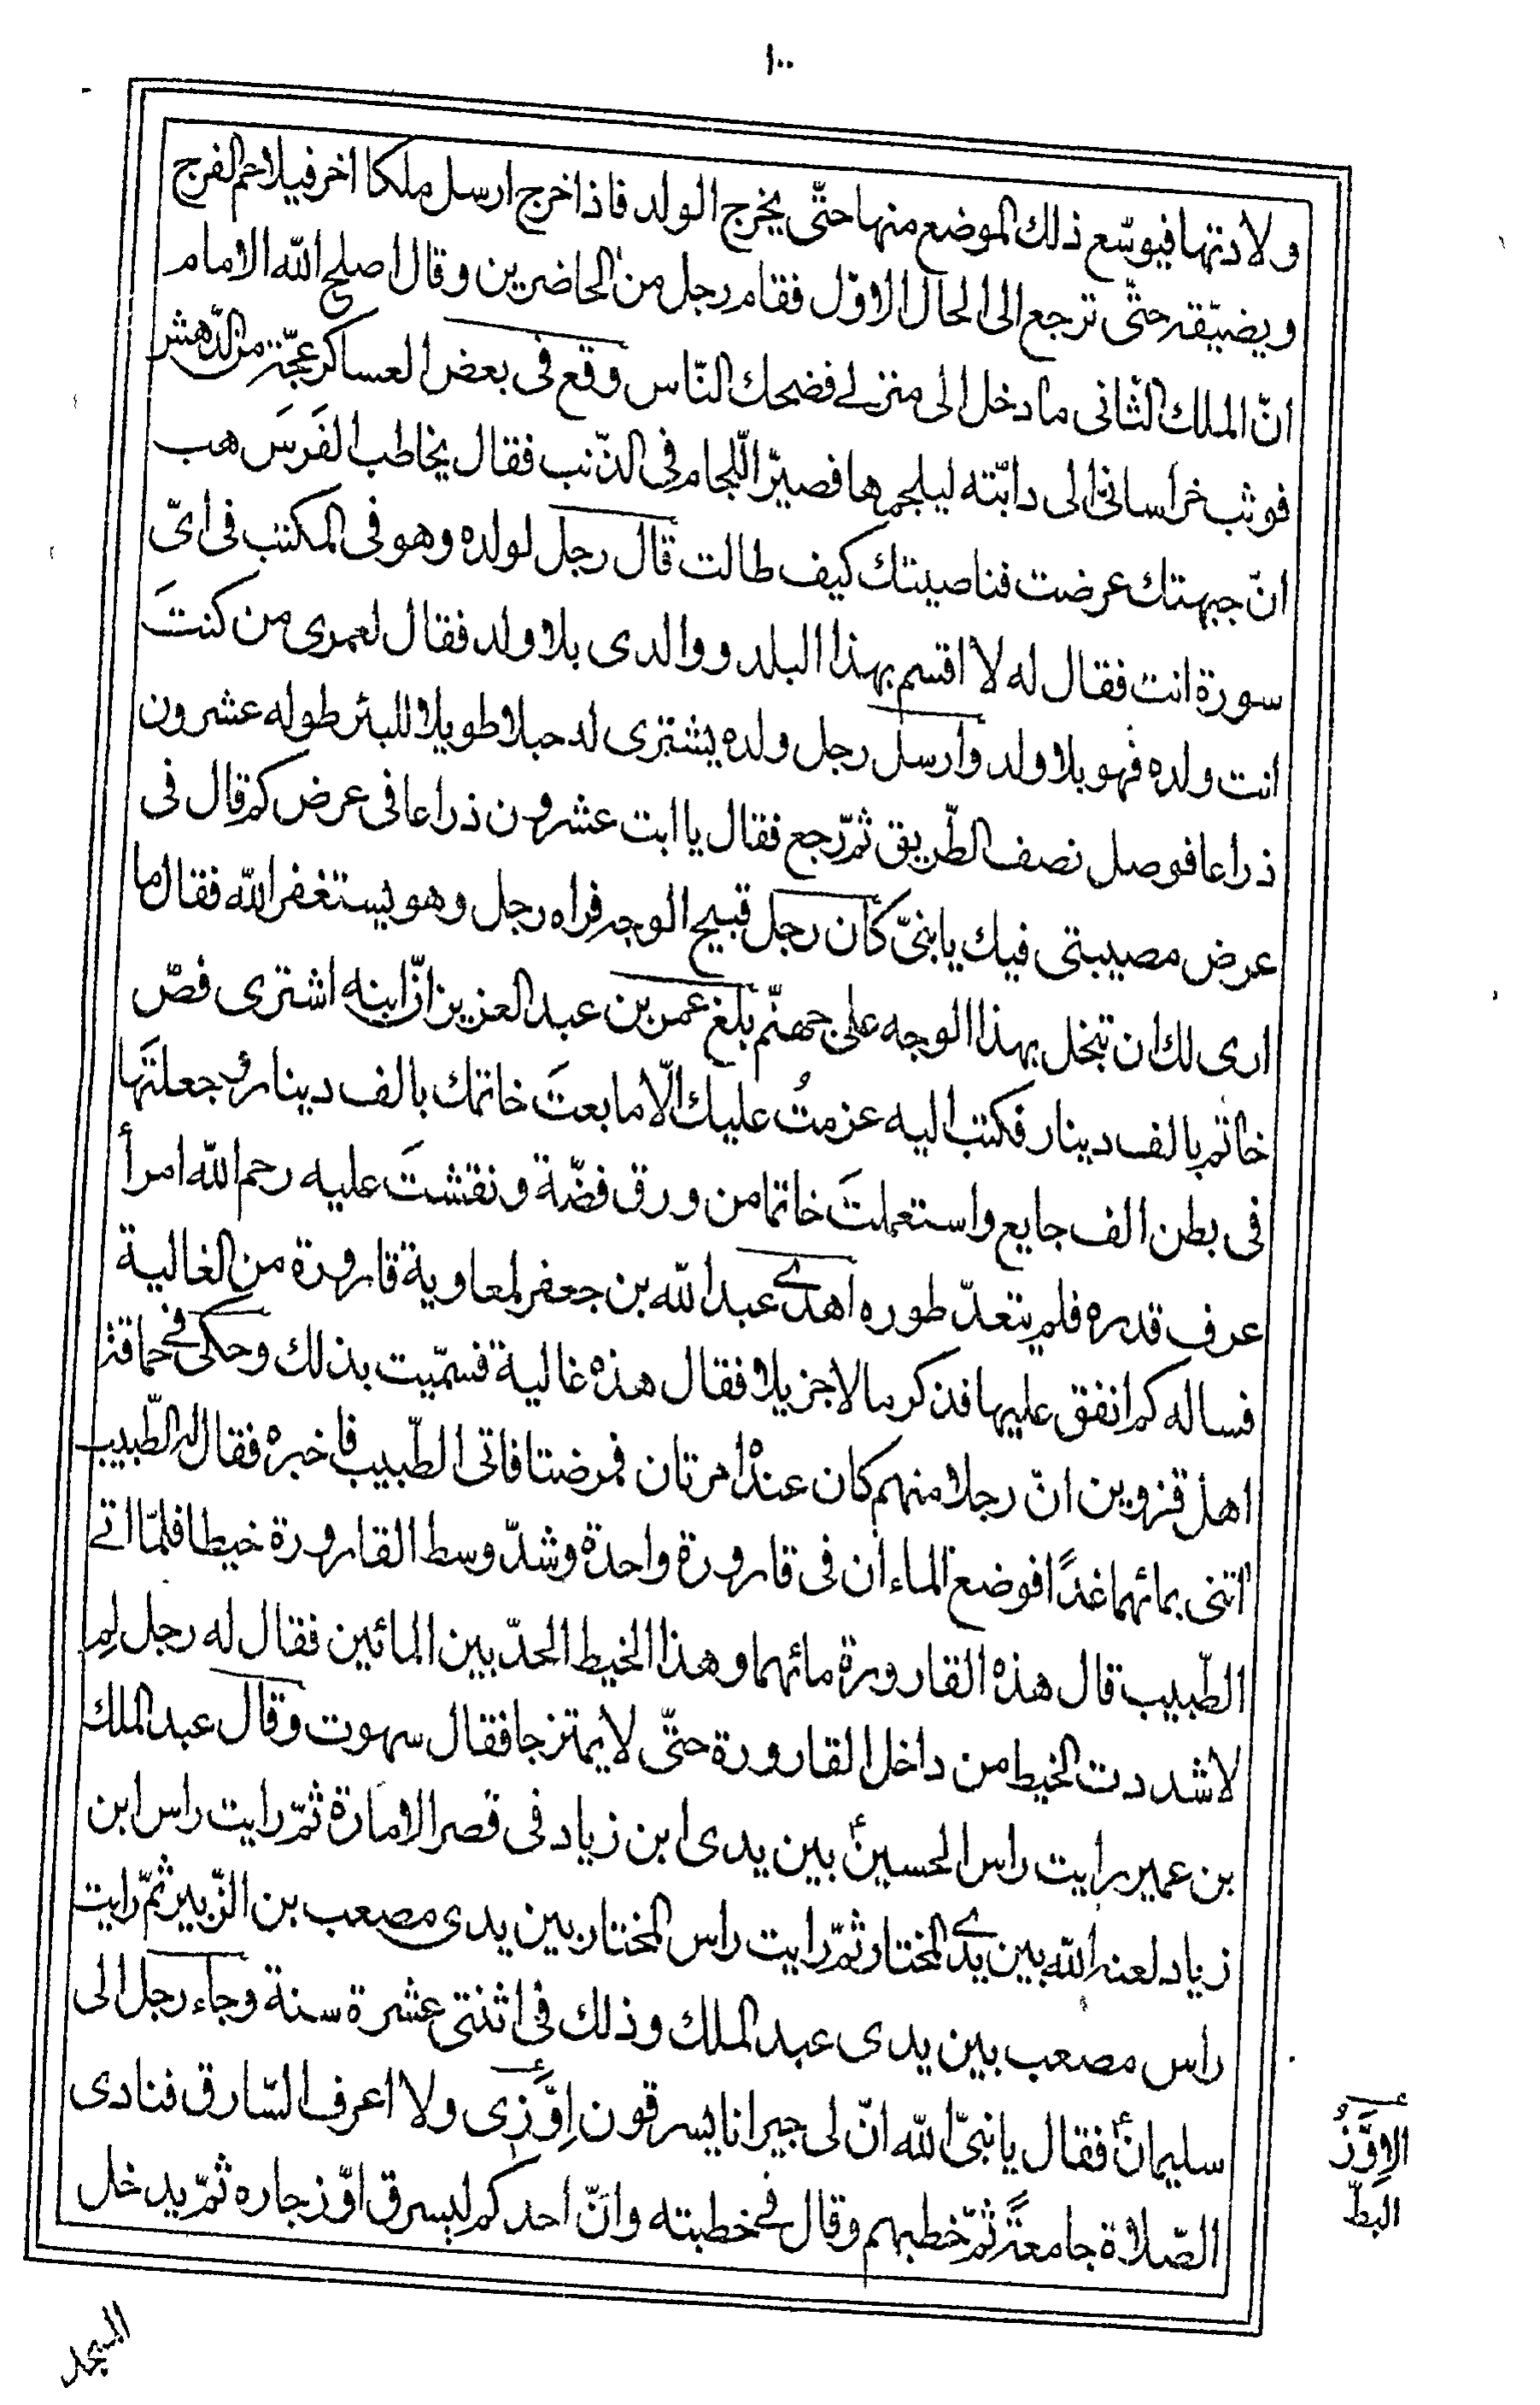 ١٠٠
ولادتها فيوسّع ذلك الموضع منها حتّى يخرج الولد فاذا خرج ارسل ملكا اخر فيلاحم الفرج
ويضيّقه حتّى ترجع الى الحال الاوّل فقام رجل من الحاضرين وقال اصلح الله الامام
انّ الملك الثّانى ما دخل الى منزلے فضحك النّاس وقع فى بعض العساكر عجّة من الدّهش
فوثب خراسانىّ الى دابّته ليلجمها فصيّر اللّجام فى الذّنب فقال يخاطب الفَرَسَ هب
انّ جبهتك عرضت فناصيتك كيف طالت قال رجل لولده وهو فى المكتب فى اىّ
سورة انت فقال له لا اقسم بهذا البلد ووالدى بلا ولد فقال لعمرى من كنتَ
انت ولده فهو بلا ولد وارسل رجل ولده يشترى له حبلا طويلا للبئر طوله عشرون
ذراعا فوصل نصف الطّريق ثمّ رجع فقال يا ابت عشرون ذراعا فى عرض كم قال فى
عرض مصيبتى فيك يا بنىّ كان رجل قبيح الوجه فراه رجل وهو يستغفر الله فقال ما
ارى لك ان تبخل بهذا الوجه على جهنّم بلغ عمر بن عبد العزيز انّ ابنه اشترى فصّ
خاتم بالف دينار فكتب اليه عزمتُ عليك الّا ما بعتَ خاتمك بالف دينار وجعلتَها
فى بطن الف جايع واستعملتَ خاتما من ورق فضّة ونقشتَ عليه رحم الله امرأ
عرف قدره فلم يتعدّ طوره اهدى عبد الله بن جعفر لمعاوية قارورة من الغالية
فساله كم انفق عليها فذكر مالا جزيلا فقال هذه غالية فسمّيت بذلك وحكى فے حماقة
اهل قزوين انّ رجلا منهم كان عنده امرتان فمرضتا فاتى الطّبيب فاخبره فقال له الطّبيب
اتنى بمائهما غدًا فوضع الماءان فى قارورة واحدة وشدّ وسط القارورة خيطا فلمّا اتے
الطّبيب قال هذه القارورة مائهما وهذا الخيط الحدّ بين المائين فقال له رجل لِم
لا شددت الخيط من داخل القارورة حتّى لا يمتزجا فقال سهوت وقال عبد الملك
بن عمير رايت راس الحسينؑ بين يدى ابن زياد فى قصر الامارة ثمّ رايت راس ابن
زياد لعنه الله بين يدے المختار ثمّ رايت راس المختار بين يدى مصعب بن الزّبير ثمّ رايت
راس مصعب بين يدى عبد الملك وذلك فى اثنتى عشرة سنة وجاء رجل الى
سليمانؑ فقال يا نبىّ الله انّ لى جيرانا يسرقون اِوَّزِى ولا اعرف السّارق فنادى
الصّلاة جامعةً ثمّ خطبهم وقال فے خطبته وانّ احدكم ليسرق اوّز جاره ثمّ يدخل
الاِوَّزُ
البطّ
المسجد